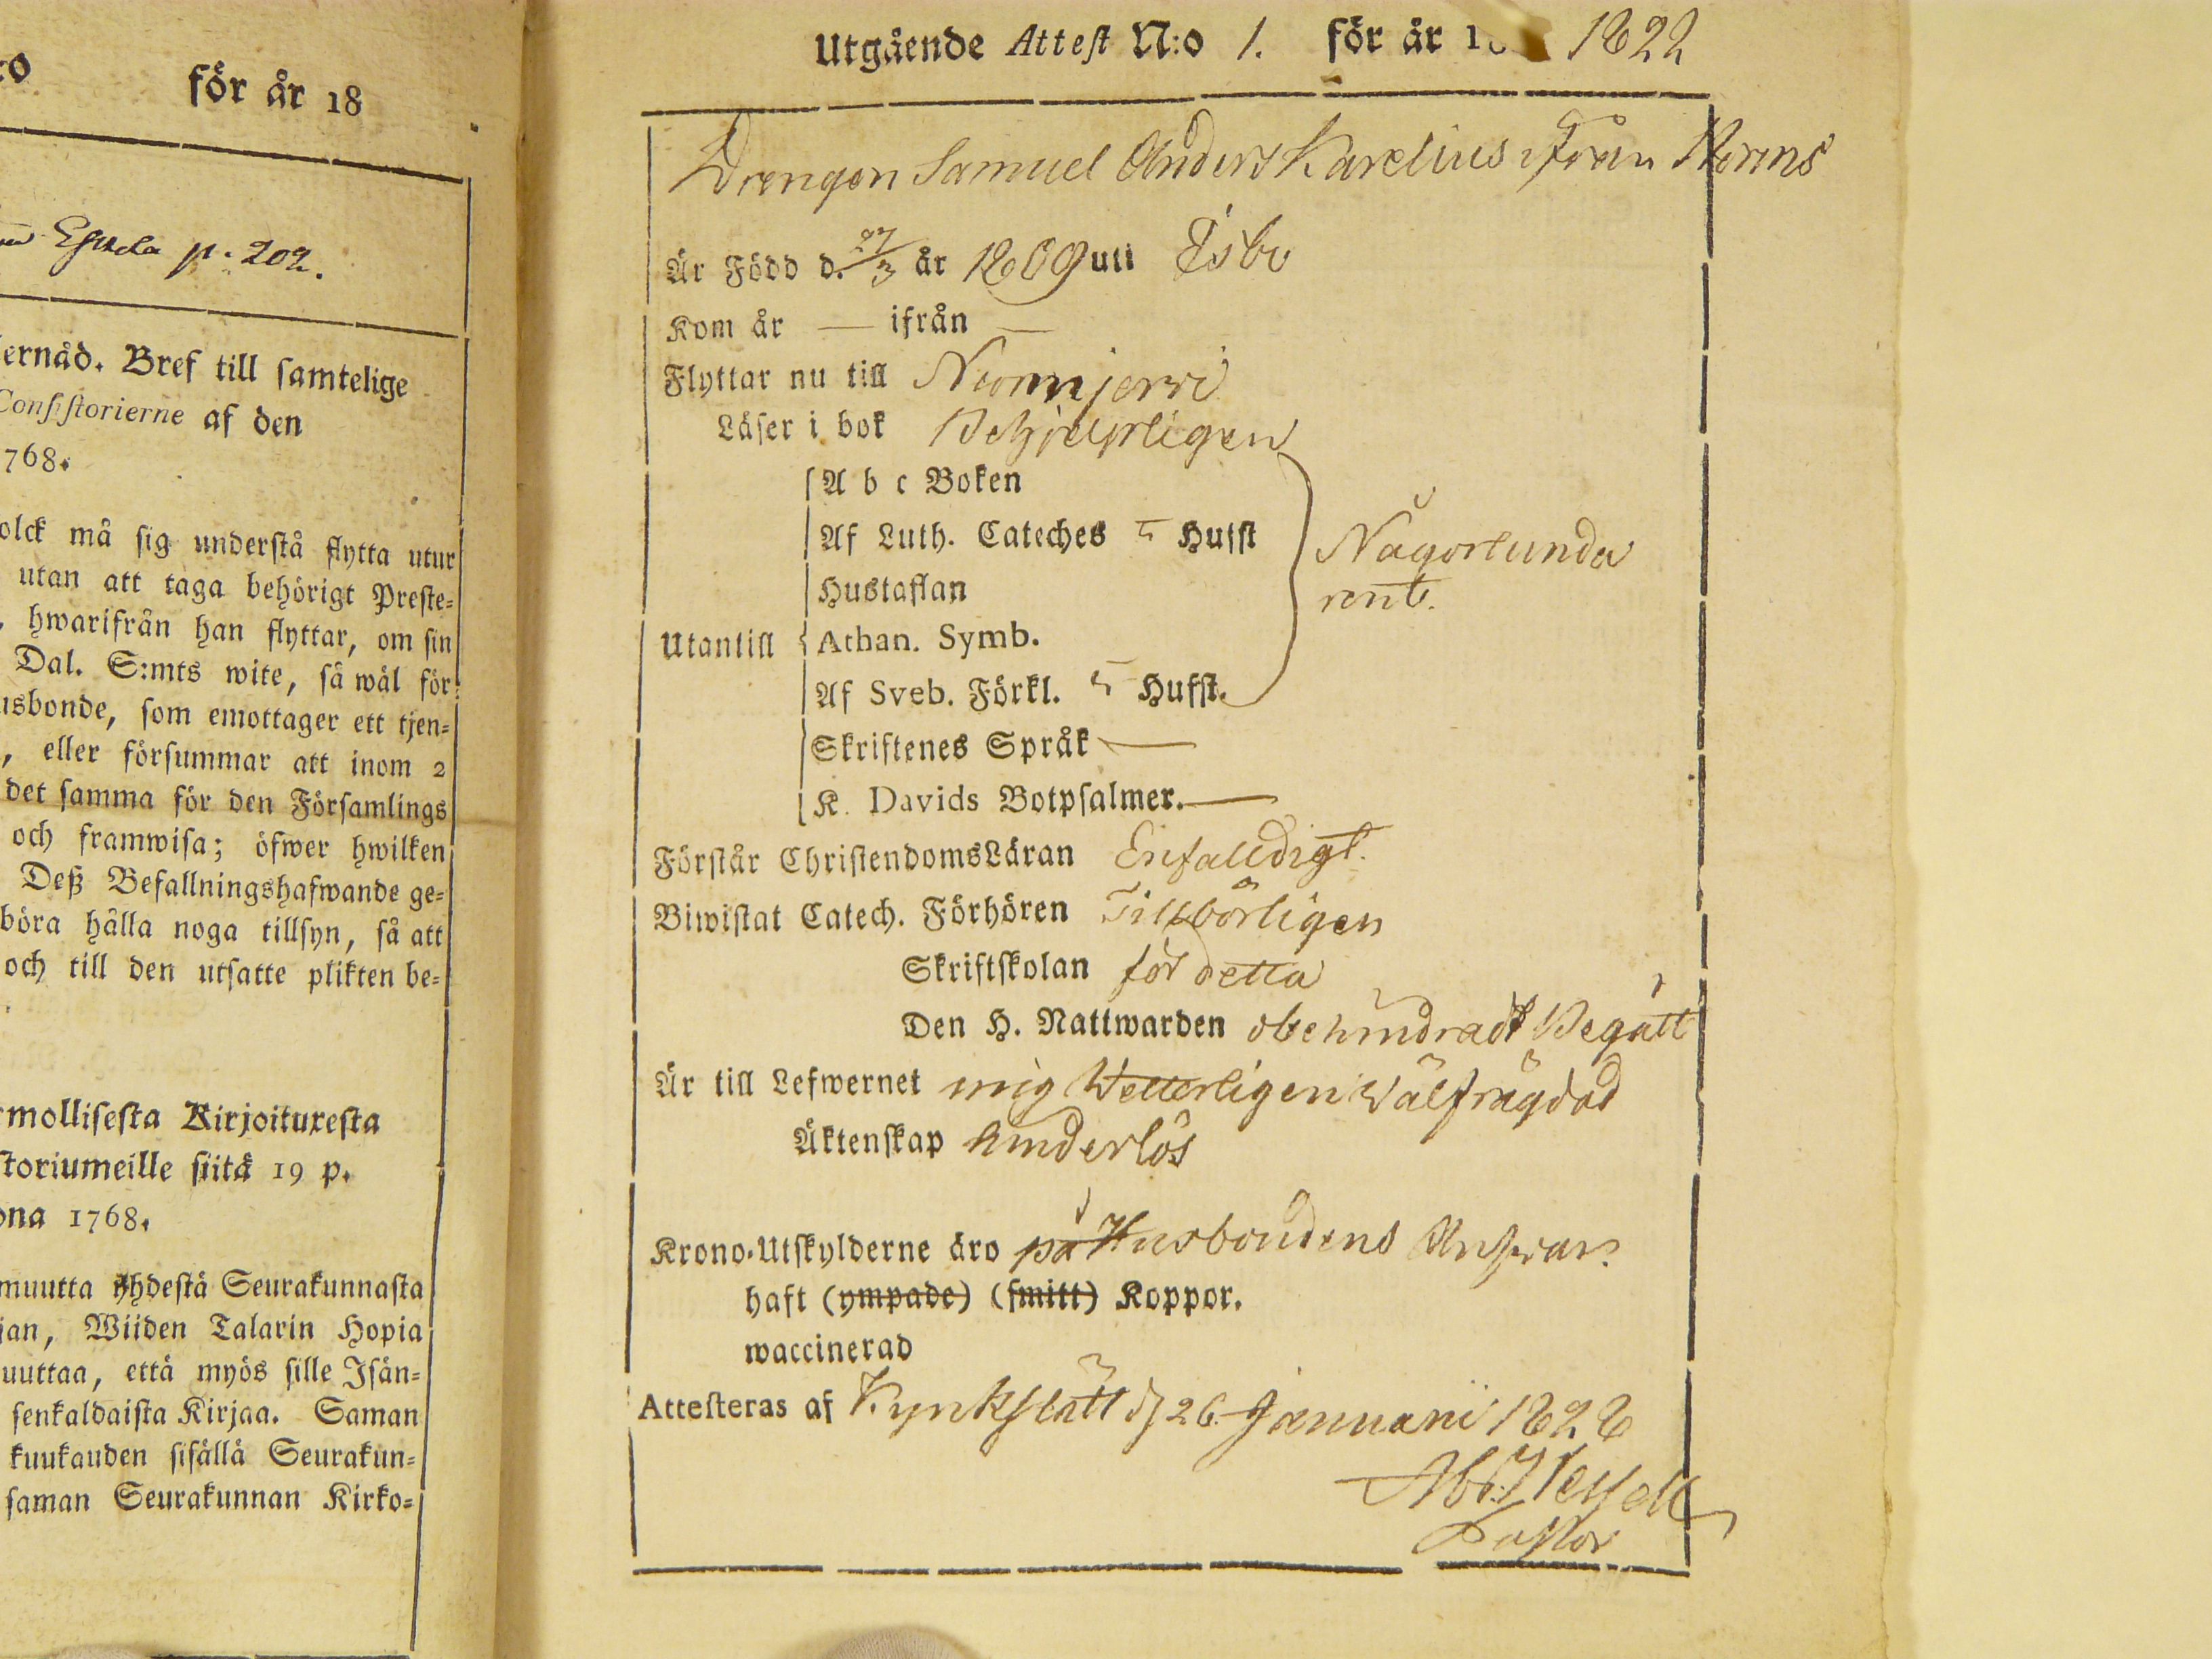 :o för år 18
Esskela p. 202.
ernåd. Bref till samtelige
Consistorierne af den
1768.
olck må sig understå flytta utur
utan att taga behörigt Preste=
, hwarifrån han flyttar, om sin
Dal. S:mts wite, så wäl för
usbonde, som emottager ett tjen=
, eller försummar att inom 2
det samma för den Församlings
och framwisa; öfwer hwilken
Deß Befallningshafwande ge=
böra hålla noga tillsyn, så att
och till den utsatte plikten be=
mollisesta Kirjoituxesta
storiumeille siitä 19 p.
ona 1768.
muutta yhdestä Seurakunnasta
jan, Wiiden Talarin Hopia
uuttaa, että myös sille Isän=
senkaldaista Kirjaa. Saman
kuukauden sisällä Seurakun=
saman Seurakunnan Kirko=
Utgående Attest N:o 1. för år 18 1822
Drengen Samuel Anders Karelius ifrån
Är Född d. 27/3 år 1809 uti Esbo
Kom år — ifrån —
Flyttar nu till Nummjerwi
Läser i bok Behjelpligen
A b c Boken
Af Luth. Cateches 5 Hufst Någorlunda
Hustaflan rent.
Utantill Athan. Symb.
Af Sveb. Förkl. 5 Hufst.
Skriftenes Språk —
K. Davids Botpsalmer. —
Förstår ChristendomsLäran Enfaldigt.
Biwistat Catech. Förhören Tillbörligen
Skriftskolan för detta
Den H. Nattwarden obehindradt Begått
Är till Lefwernet mig Wetterligen Wälfrägdad
Äktenskap hinderlös
Krono-Utskylderne äro på Husbondens Answar.
haft (ympade) (smitt) Koppor.
waccinerad
Attesteras af Kyrkslätt d 26 Januarii 1822
Pastor